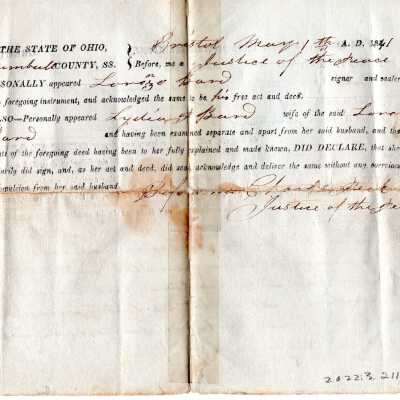 THE STATE OF OHIO, } Bristol May 1th A. D. 1841
umbull COUNTY, SS. } Before, me a Justice of the Peace
RSONALLY appeared Lorenzo Hard signer and sealer
e foregoing instrument, and acknowledged the same to be his free act and deed.
LSO—Personally appeared Lydia Hard wife of the said Loren
Hard and having been examined separate and apart from her said husband, and the
nts of the foregoing deed having been to her fully explained and made known, DID DECLARE, that she
tarily did sign, and, as her act and deed, did seal, acknowledge and deliver the same without any coercion
ompulsion from her said husband. Before me Charles
Justice of the Pe
2022.3.211